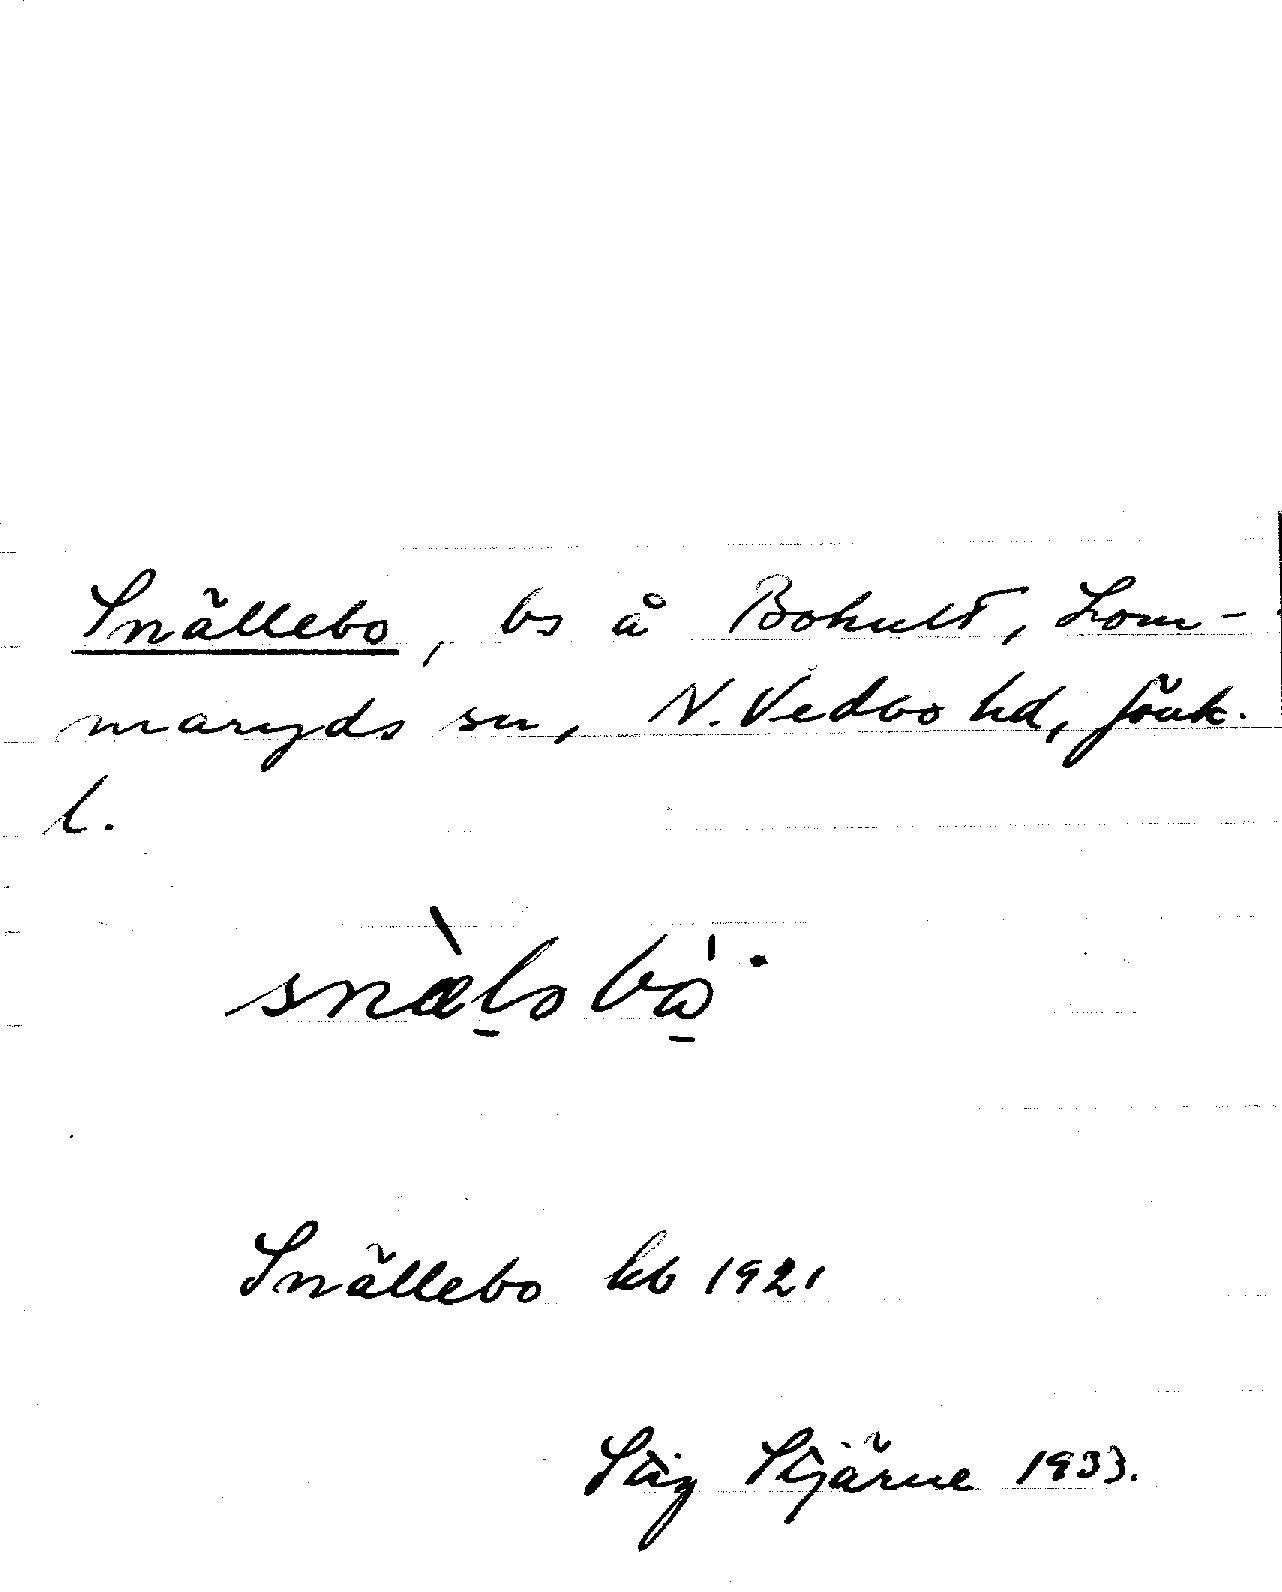 Snällebo, bs å Bohult, Lom-
maryds sn, N. Vedbo hd, Jönk.
l.
snæ̀lobå.
Snällebo kb 1921
Stig Stjärne 1933.